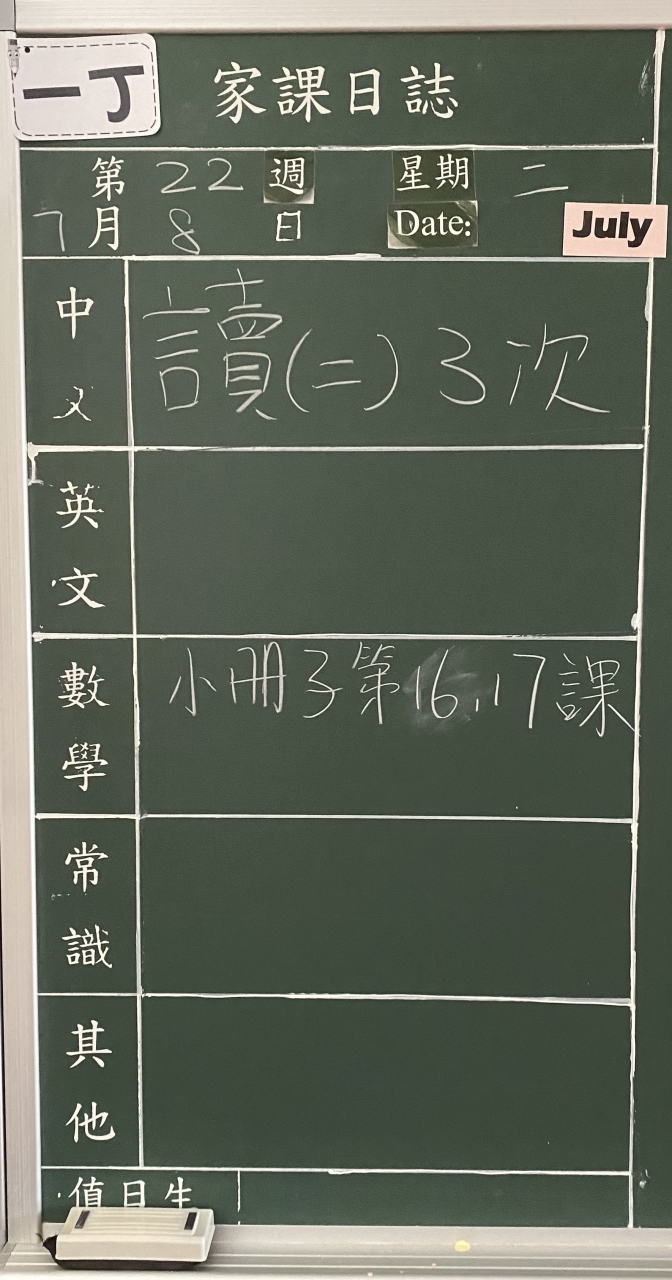 一丁
家課日誌
第 22 週 星期 二
7月 8 日 Date: July
中文 讀(二) 3次
英文
數學 小冊子第16,17課
常識
其他
值日生